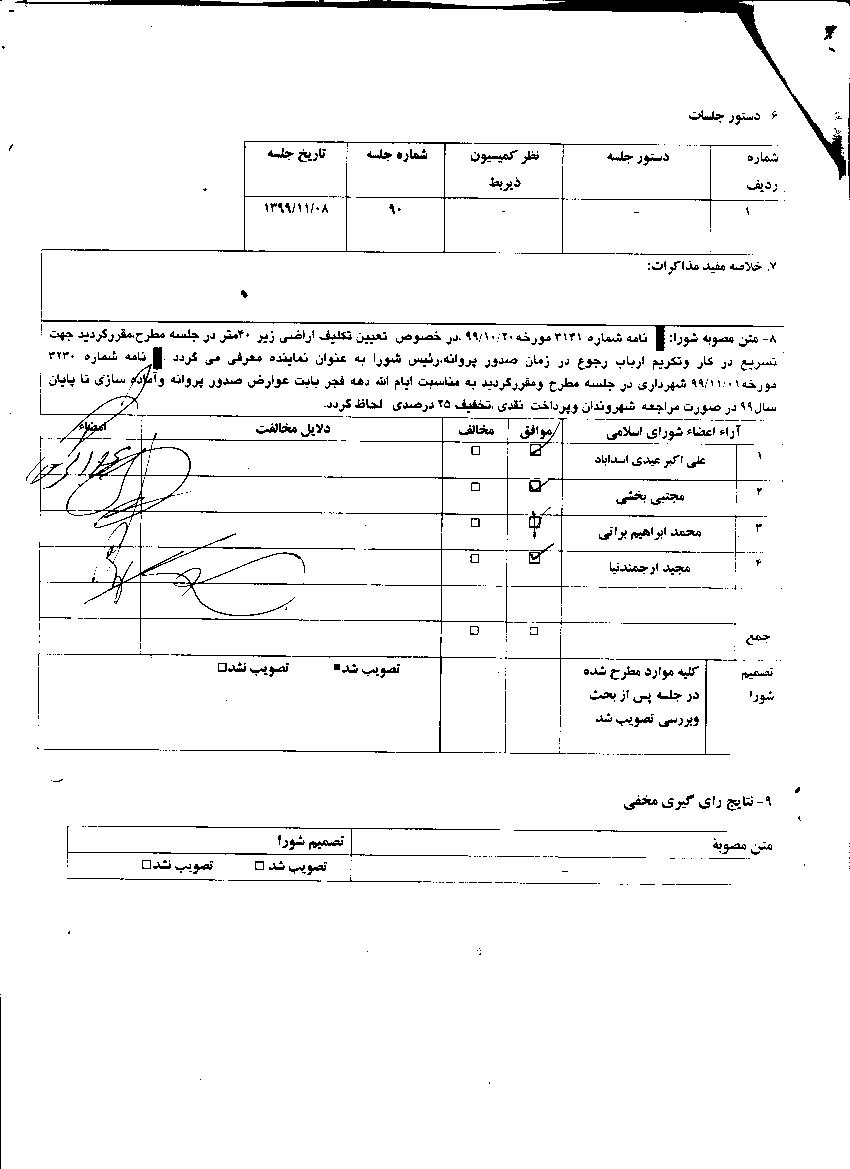 ۶ دستور جلسات
شماره ردیف دستور جلسه نظر کمیسیون ذیربط شماره جلسه تاریخ جلسه
۱ - - ۹۰ ۱۳۹۹/۱۱/۰۸
۷. خلاصه مفید مذاکرات:
۸- متن مصوبه شورا: نامه شماره ۳۱۳۱ مورخه ۹۹/۱۰/۲۰ در خصوص تعیین تکلیف اراضی زیر ۴۰متر در جلسه مطرح،مقررگردید جهت
تسریع در کار وتکریم ارباب رجوع در زمان صدور پروانه،رئیس شورا به عنوان نماینده معرفی می گردد نامه شماره ۳۲۳۰
مورخه ۹۹/۱۱/۰۱ شهرداری در جلسه مطرح ومقررگردید به مناسبت ایام الله دهه فجر بابت عوارض صدور پروانه وآماده سازی تا پایان
سال۹۹ در صورت مراجعه شهروندان وپرداخت نقدی ،تخفیف ۲۵ درصدی لحاظ گردد.
آراء اعضاء شورای اسلامی موافق مخالف دلایل مخالفت امضاء
۱ علی اکبر عبدی اسدآباد
۲ مجتبی بخشی
۳ محمد ابراهیم براتی
۴ مجید ارجمندنیا
جمع
تصمیم شورا کلیه موارد مطرح شده تصویب شد تصویب نشد
در جلسه پس از بحث
وبررسی تصویب شد
۹- نتایج رای گیری مخفی
متن مصوبة تصمیم شورا
- تصویب شد تصویب نشد